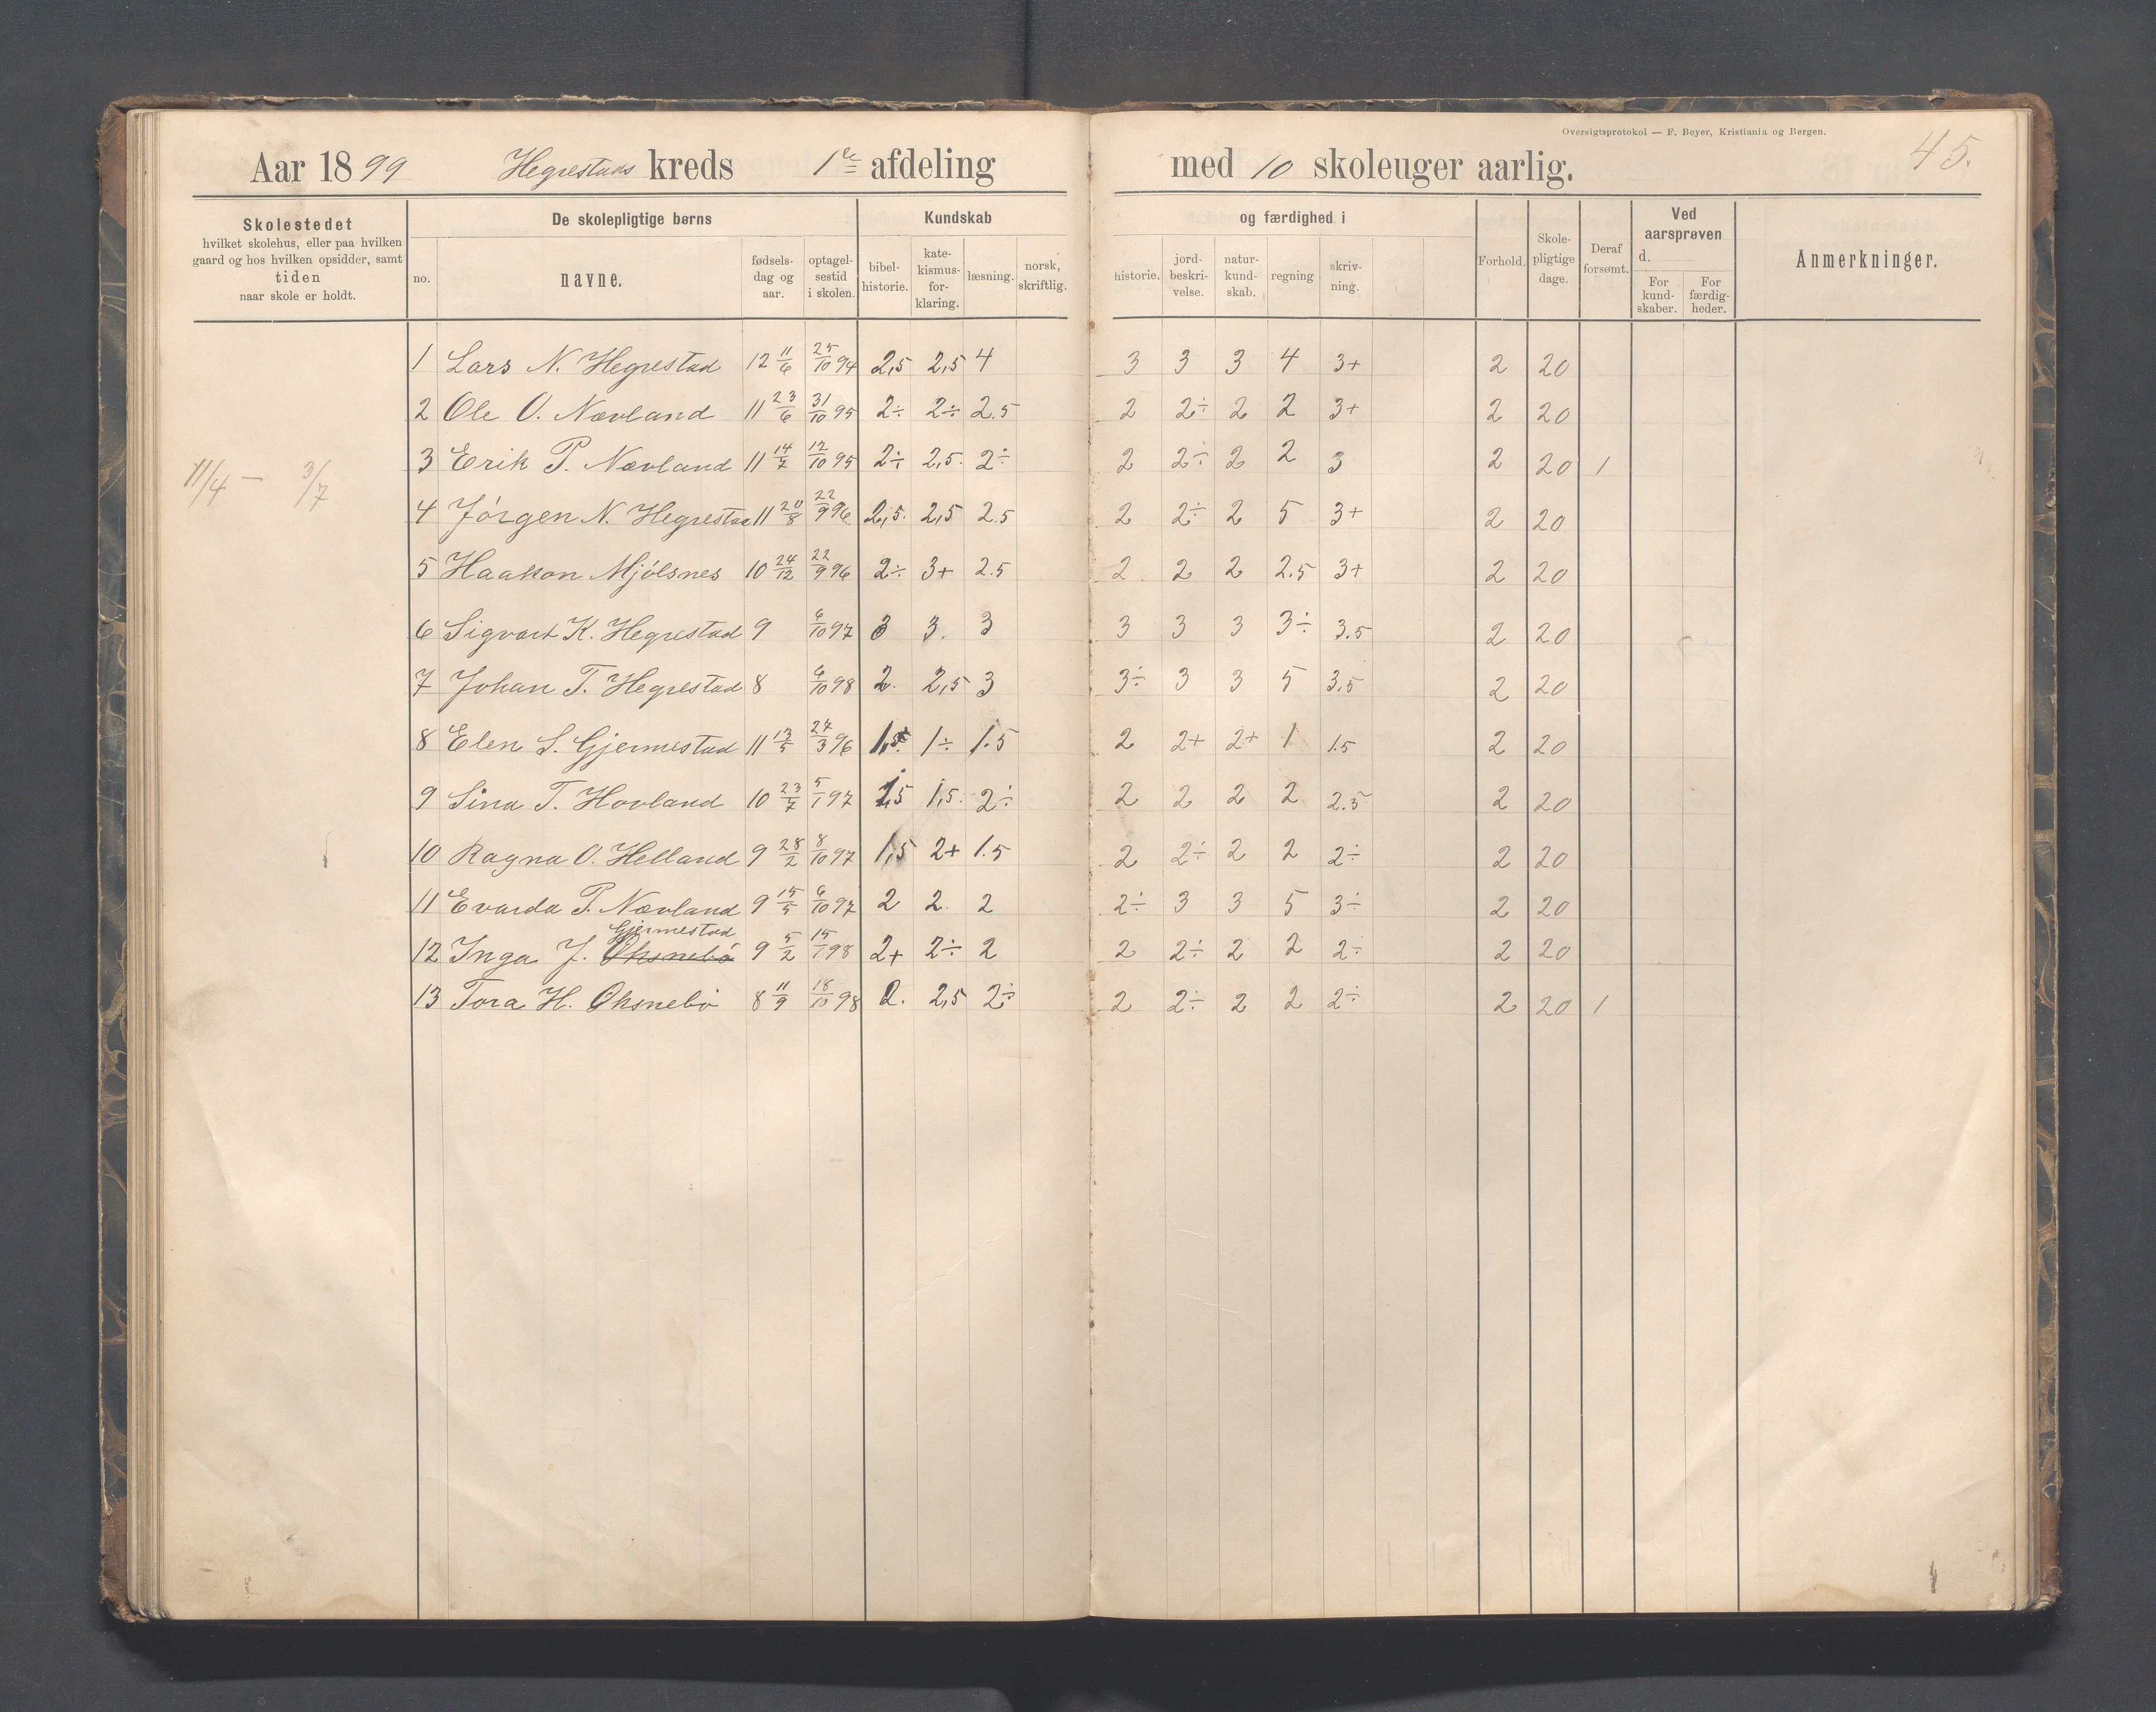 Oversigtsprotokol — F. Beyer, Kristiania og Bergen.
45.
Aar 1899 Hegrestads kreds 1ste afdeling med 10 skoleuger aarlig.
Skolestedet
hvilket skolehus, eller paa hvilken
gaard og hos hvilken opsidder, samt
tiden
naar skole er holdt.
De skolepligtige børns
no.
navne.
fødsels-
dag og
aar.
optagel-
sestid
i skolen.
Kundskab
bibel-
historie.
kate-
kismus-
for-
klaring.
læsning.
norsk,
skriftlig.
og færdighed i
historie.
jord-
beskri-
velse.
natur-
kund-
skab.
regning
skriv-
ning.
Forhold.
Skole-
pligtige
dage.
Deraf
forsømt.
Ved
aarsprøven
d.
For
kund-
skaber.
For
færdig-
heder.
Anmerkninger.
11/4 — 3/7
1 Lars N. Hegrestad 12 11/6 25/10 94 2,5 2,5 4 3 3 3 4 3+ 2 20
2 Ole O. Nævland 11 23/6 31/10 95 2÷ 2÷ 2.5 2 2÷ 2 2 3+ 2 20
3 Erik P. Nævland 11 14/7 12/10 95 2÷ 2,5. 2÷ 2 2÷ 2 2 3 2 20 1
4 Jörgen N. Hegrestad 11 20/8 22/9 96 2,5. 2,5 2.5 2 2÷ 2 5 3+ 2 20
5 Haakon Mjölsnes 10 24/12 22/9 96 2÷ 3+ 2.5 2 2 2 2.5 3+ 2 20
6 Sigvart K. Hegrestad 9 6/10 97 3 3. 3 3 3 3 3÷ 3.5 2 20
7 Johan T. Hegrestad 8 6/10 98 2. 2,5 3 3÷ 3 3 5 3,5 2 20
8 Elen S. Gjermestad 11 13/5 27/3 96 1,5 1÷ 1.5 2 2+ 2+ 1 1.5 2 20
9 Sina T. Hovland 10 23/7 5/1 97 1,5 1,5. 2÷ 2 2 2 2 2.5 2 20
10 Ragna O. Helland 9 28/2 8/10 97 1,5 2+ 1.5 2 2÷ 2 2 2÷ 2 20
11 Evarda P. Nævland 9 15/5 6/10 97 2 2. 2 2÷ 3 3 5 3÷ 2 20
Gjermestad
12 Inga J. Öksnebö 9 5/2 15/1 98 2+ 2÷ 2 2 2÷ 2 2 2÷ 2 20
13 Tora H. Öksnebö 8 11/9 18/10 98 2. 2,5 2÷ 2 2÷ 2 2 2÷ 2 20 1